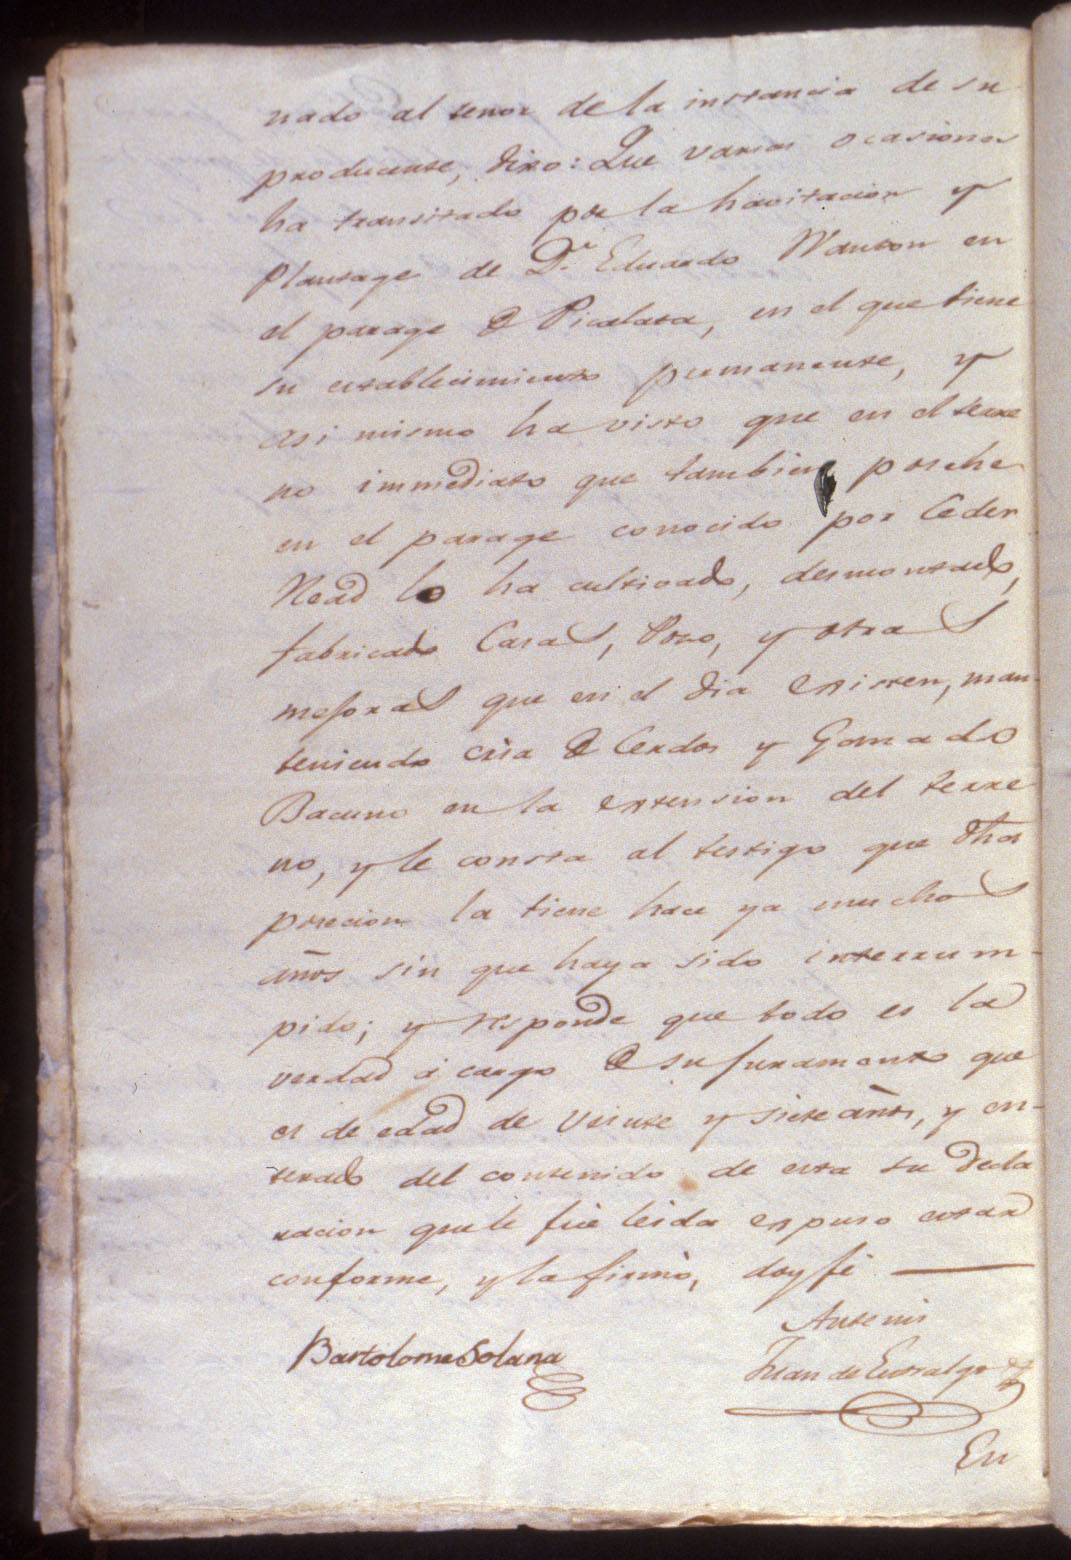 nado al tenor de la instancia de su
producente, dixo: Que varias ocasiones
ha transitado por la havitacion y
Plantage de Dn. Eduardo Wanton en
el parage de Picalata, en el que tiene
su establecimiento permanente, y
asi mismo ha visto que en el terre
no immediato que tambien poséhe
en el parage conocido por Ceder
Head lo ha cultivado, desmontado,
fabricado Casas, Pozo, y otras
mejoras que en el dia existen, man-
teniendo cria de Cerdos y Ganado
Bacuno en la extension del terre
no, y le consta al testigo que dha
posecion la tiene hace ya muchos
años sin que haya sido interrum-
pido; y responde que todo es la
verdad á cargo de su juramento que
es de edad de Veinte y siete años, y en-
terado del contenido de esta su decla
racion que le fué leida expuso estar
conforme, y la firmó, doy fé
Antemi
Bartolome Solana
Juan de Entralgo
En